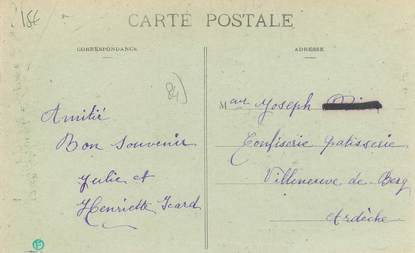 15€
CARTE POSTALE
CORRESPONDANCE
ADRESSE
84)
Amitié
Bon souvenir
Julie et
Henriette Icard
Joseph
Confiserie patisserie
Villeneuve de Berg
Ardèche